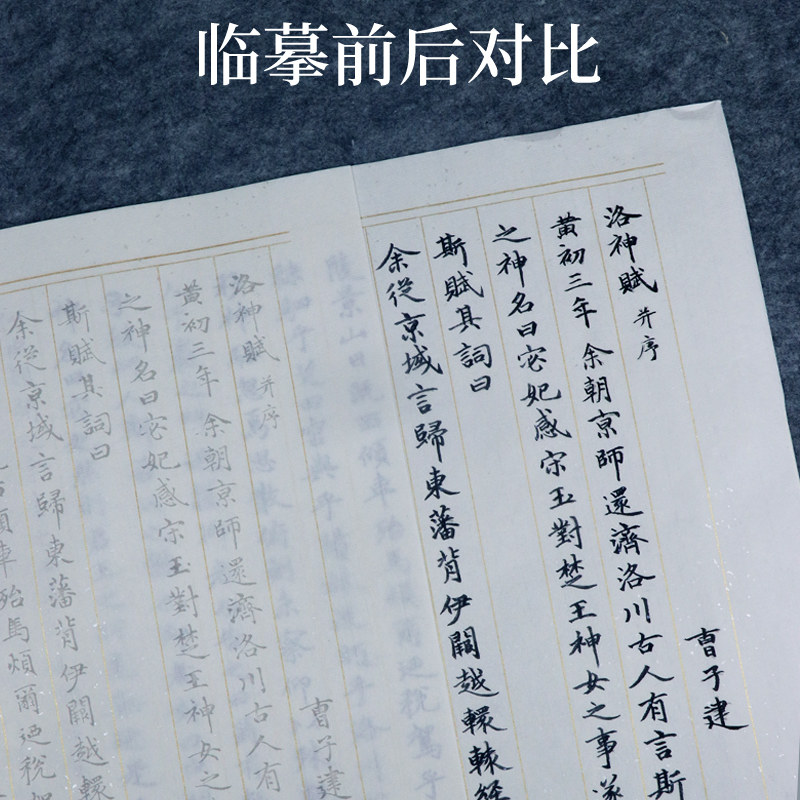 临摹前后对比
洛神賦 并序
曹子建
黄初三年 余朝京師還濟洛川古人有言斯
之神名曰宓妃感宋玉對楚王神女之事遂
斯賦其詞曰
余從京域言歸東藩背伊闕越轘轅經
洛神賦 并序
曹子建
黄初三年 余朝京師還濟洛川古人有
之神名曰宓妃感宋玉對楚王神女之
斯賦其詞曰
余從京域言歸東藩背伊闕越轘
傾車殆馬煩爾迺税